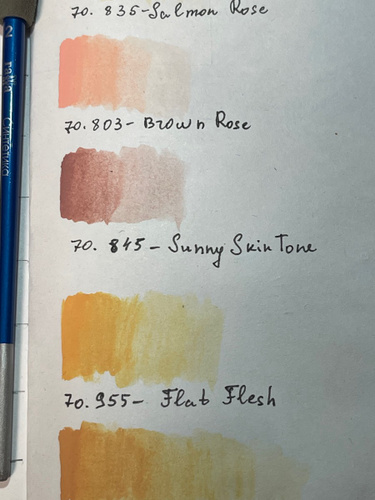 70. 835-Salmon Rose
70.803- Brown Rose
70. 845 - Sunny Skin Tone
70.955- Flat Flesh
2 гамма Синтетика